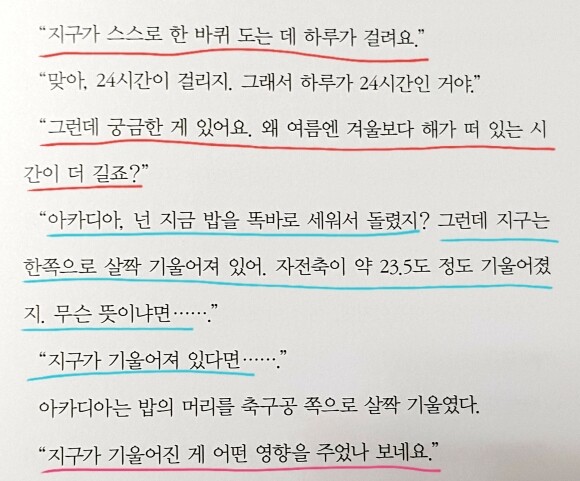 “지구가 스스로 한 바퀴 도는 데 하루가 걸려요.”
“맞아, 24시간이 걸리지. 그래서 하루가 24시간인 거야.”
“그런데 궁금한 게 있어요. 왜 여름엔 겨울보다 해가 떠 있는 시
간이 더 길죠?”
“아카디아, 넌 지금 밥을 똑바로 세워서 돌렸지? 그런데 지구는
한쪽으로 살짝 기울어져 있어. 자전축이 약 23.5도 정도 기울어졌
지. 무슨 뜻이냐면…….”
“지구가 기울어져 있다면…….”
아카디아는 밥의 머리를 축구공 쪽으로 살짝 기울였다.
“지구가 기울어진 게 어떤 영향을 주었나 보네요.”